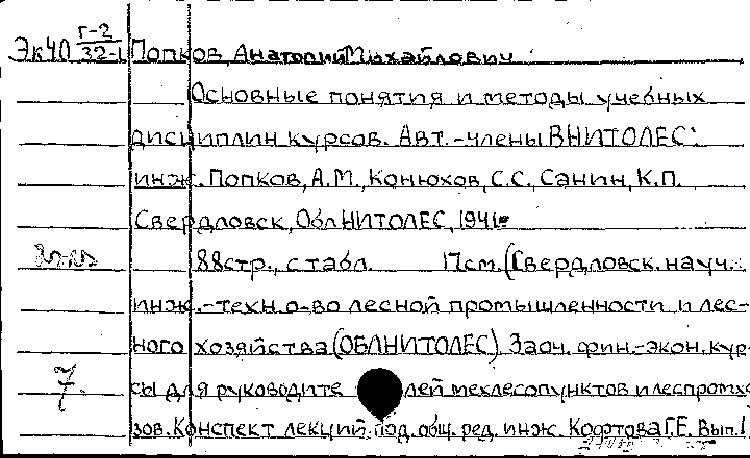 Эк40 Г-2/32-1 Попков, Анатолий Михайлович
Основные понятия и методы учебных
дисциплин курсов. Авт.-члены ВНИТОЛЕС:
инж. Попков, А.М., Конюхов, С.С., Санин, К.П.
Свердловск, ОблНИТОЛЕС, 1941.
88стр., с табл. Псм. (Свердловск. науч.
инж.-техн. о-во лесной промышленности и лес-
ного хозяйства (ОБЛНИТОЛЕС). Заоч. фин.-экон. кур-
7. сы для руководите лей мехлесопунктов и леспромхо
зов. Конспект лекций. под. общ. ред. инж. Кофтова Г.Е. Вып. 1